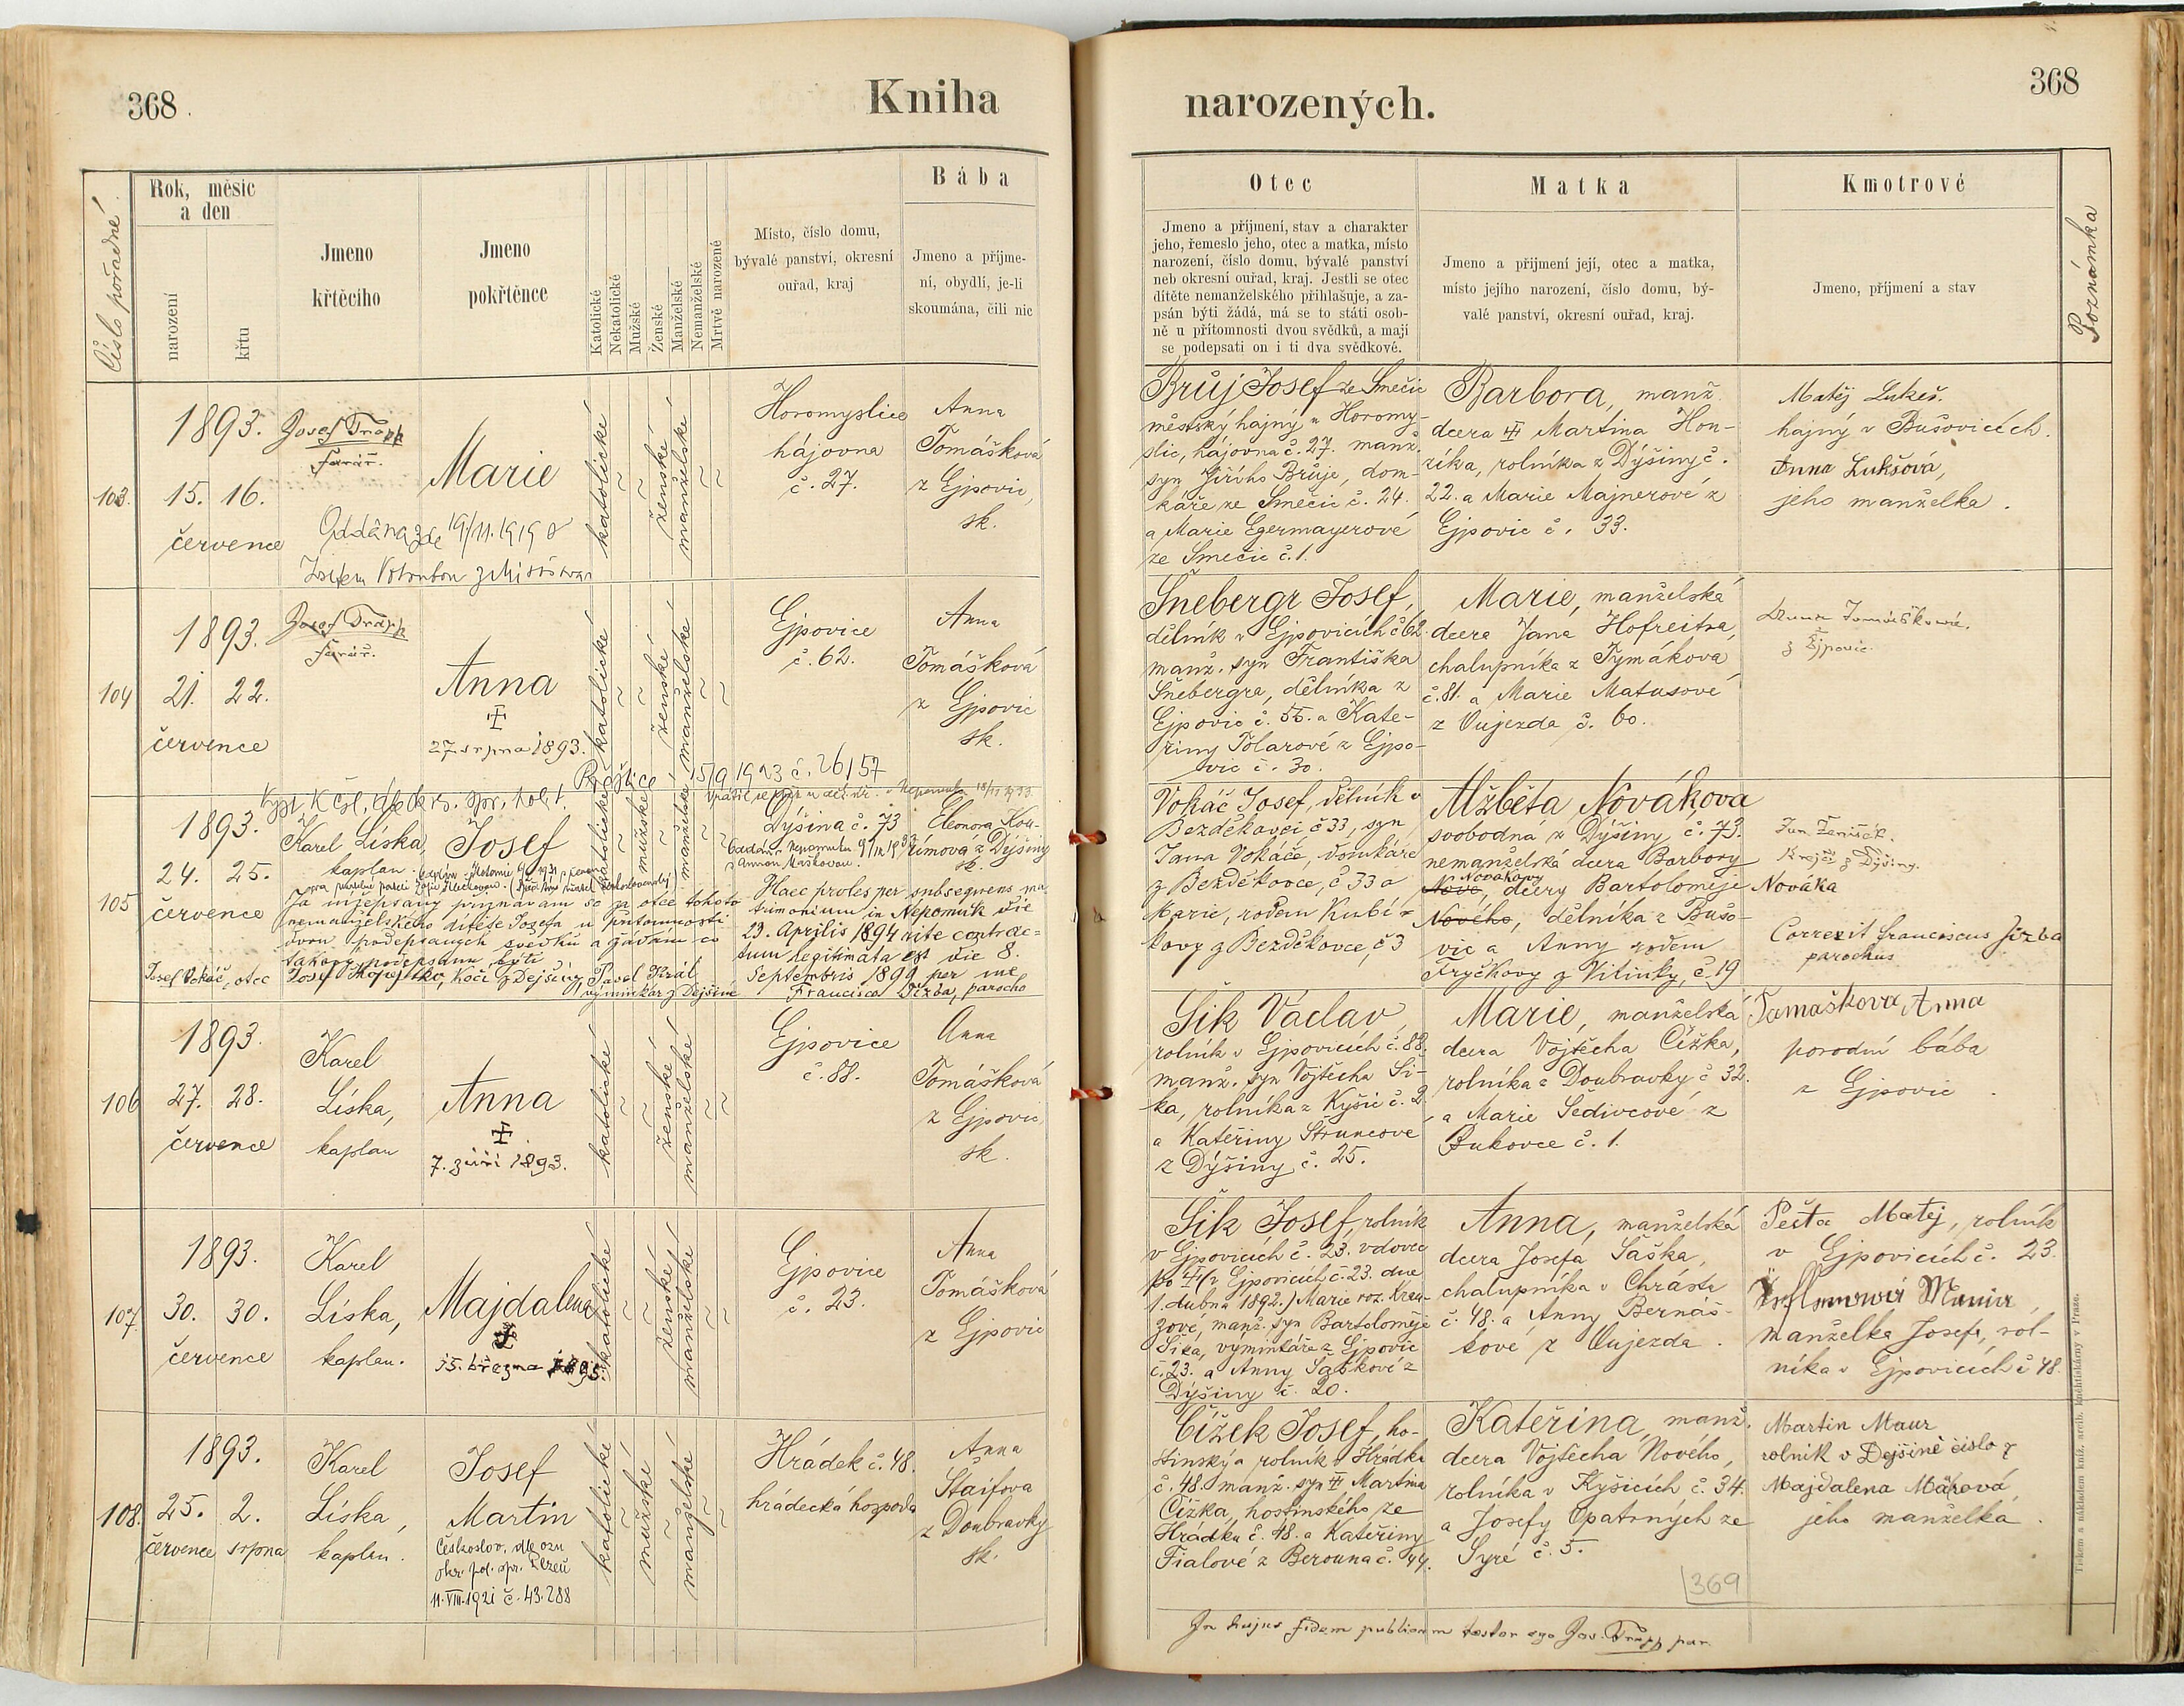 368.
Kniha
narozených.
368
Číslo pořadné
Rok, měsíc
a den
narození
křtu
Jmeno
křtěcího
Jmeno
pokřtěnce
Katolické
Nekatolické
Mužské
Ženské
Manželské
Nemanželské
Mrtvě narozené
Místo, číslo domu,
bývalé panství, okresní
ouřad, kraj
Bába
Jmeno a příjme-
ní, obydlí, je-li
skoumána, čili nic
Otec
Jmeno a příjmení, stav a charakter
jeho, řemeslo jeho, otec a matka, místo
narození, číslo domu, bývalé panství
neb okresní ouřad, kraj. Jestli se otec
dítěte nemanželského přihlašuje, a za-
psán býti žádá, má se to státi osob-
ně u přítomnosti dvou svědků, a mají
se podepsati on i ti dva svědkové.
Matka
Jmeno a přijmení její, otec a matka,
místo jejího narození, číslo domu, bý-
valé panství, okresní ouřad, kraj.
Kmotrové
Jmeno, příjmení a stav
Poznámka
103.
1893.
15. 16.
července
Josef Trapp
farář.
Marie
Oddána zde 19/11.1919 s
Josefem
katolické
ženské
manželské
Horomyslice
hájovna
č. 27.
Anna
Tomášková
z Ejpovic,
sk.
Brůj Josef ze Smečic
městský hajný v Horomy-
slic, hájovna č. 27. manž.
syn Jiřího Brůje, dom-
káře ze Smečic č. 24.
a Marie Egermayerové
ze Smečic č. 1.
Barbora, manž.
dcera Martina Hon-
zíka, rolníka z Dýšiny č.
22. a Marie Majnerové z
Ejpovic č. 33.
Matěj Lukeš.
hajný v Bušovicích.
Anna Lukšová,
jeho manželka.
104
1893.
21. 22.
července
Josef Trapp
farář.
Anna
27. srpna 1893.
katolické
ženské
manželské
Ejpovice
č. 62.
Anna
Tomášková
z Ejpovic
sk.
Šnebergr Josef,
dělník v Ejpovicích č 62.
manž. syn Františka
Šnebergra, dělníka z
Ejpovic č. 55. a Kate-
řiny Polarové z Ejpo-
vic č. 30.
Marie, manželská
dcera Jana Hofreitra,
chalupníka z Tymákova
č. 81. a Marie Matasové
z Oujezda č. 60.
Anna Tomáškowá.
z Ejpovic.
Přeštice 15/9 1923 č. 26157
105
1893.
24. 25.
července
Karel Líska,
kaplan.
Josef
katolické
mužské
manželské
Já nížepsaný přiznávám se za otce tohoto
nemanželského dítěte Josefa u přítomnosti
dvou podepsaných svědků a žádám co
takový podepsán býti
Josef Vokáč, otec
Kočí z Dejšiny,
Pavel Král
výminkář z Dejšiné
Dýšina č. 73
Oddán v Nepomuku
s Annou Maškovou.
Eleonora Kou-
římová z Dýšiny
sk.
Haec proles per subsequens ma
trimonium in Nepomuk die
23. Aprilis 1894 rite contrac-
tum legitimata est die 8.
Septembris 1899 per me
Francisco Jizba, parocho
Vokáč Josef, dělník v
Bezděkovci č 33, syn
Jana Vokáče, domkáře
z Bezděkovce, č 33 a
Marie, rodem Kubí-
kovy z Bezděkovce, č 3
Alžběta Nováková
svobodná z Dýšiny č. 73.
nemanželská dcera Barbory
Novákovy
Nové, dcery Bartoloměje Nováka
Nového, dělníka z Bušo-
vic a Anny rodem
Fryčkovy z Vitinky, č. 19
Jan Ženíšek.
Krejčí z Dýšiny.
Correxit Franciscus Jizba
parochus
106
1893.
27. 28.
července
Karel
Líska,
kaplan
Anna
7. září 1893.
katolické
ženské
manželské
Ejpovice
č. 88.
Anna
Tomášková
z Ejpovic,
sk.
Šik Václav,
rolník v Ejpovicích č. 88.
manž. syn Vojtěcha Ši-
ka, rolníka z Kyšic č. 2
a Kateřiny Štruncové
z Dýšiny č. 25.
Marie, manželská
dcera Vojtěcha Čížka,
rolníka z Doubravky č 32.
a Marie Šedivcové z
Bukovce č. 1.
Tamaškova Anna
porodní bába
z Ejpovic.
107.
1893.
30. 30.
července
Karel
Líska,
kaplan.
Majdalena
15. března 1895.
katolické
ženské
manželské
Ejpovice
č. 23.
Anna
Tomášková
z Ejpovic
Šik Josef, rolník
v Ejpovicích č. 23. vdovec
po (v Ejpovicích č. 23. dne
1. dubna 1892.) Marie roz. Krau-
zové, manž. syn Bartoloměje
Šika, výminkáře z Ejpovic
č. 23. a Anny Saskové z
Dýšiny č. 20.
Anna, manželská
dcera Josefa Šaška,
chalupníka v Chrástu
č. 48. a Anny Bernáš-
kové z Oujezda.
Pešta Matěj, rolník
v Ejpovicích č. 23.
manželka Josefa, rol-
níka v Ejpovicích č 48.
108.
1893.
25. 2.
července srpna
Karel
Líska,
kaplan.
Josef
Martin
Českoslov. dle ozn
okr. pol. spr. Plzeň
11. VIII. 1921 č. 43.288
katolické
mužské
manželské
Hrádek č. 48.
hrádecká hospoda
Anna
Štaifova
z Doubravky
sk.
Čížek Josef, ho-
stinský a rolník v Hrádku
č. 48. manž. syn Martina
Čížka, hostinského ze
Hrádku č. 48. a Kateřiny
Fialové z Berouna č. 44.
Kateřina, manž.
dcera Vojtěcha Nového,
rolníka v Kyšicích č. 34.
a Josefy Opatrných ze
Syré č. 5.
Martin Maur
rolník v Dejšině číslo 7
Majdalena Márová,
jeho manželka.
369
In hujus fidem publicam testor ego Jos. Trapp par.
Tiskem a nákladem kníž. arcib. knihtiskárny v Praze.